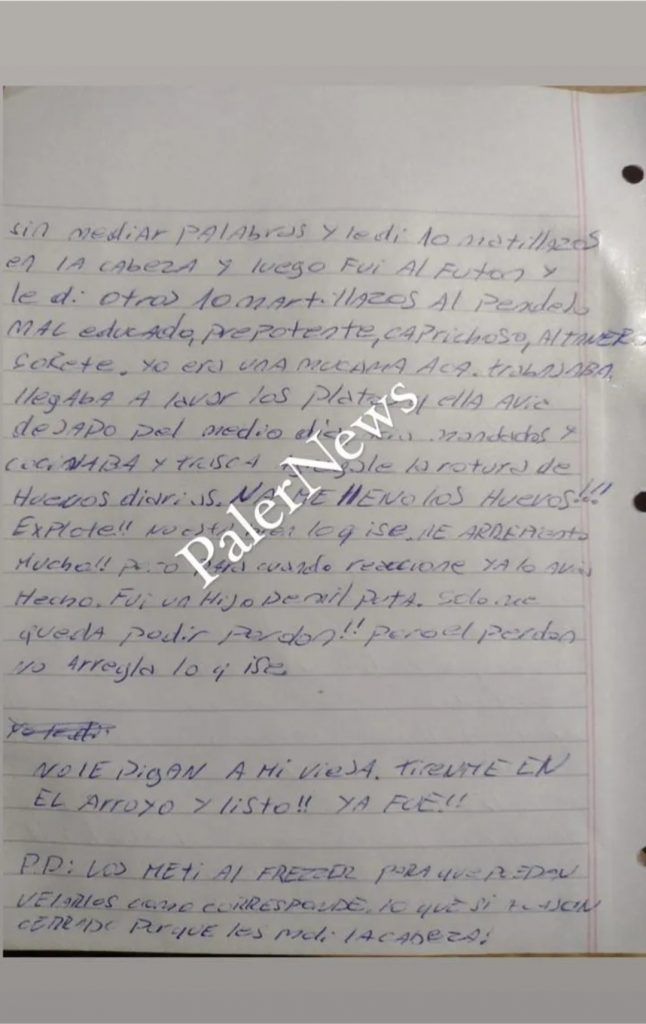 sin mediar palabras y le di 10 matillazos
en la cabeza y luego fui al futon y
le di otros 10 martillazos al pendejo
mal educado, prepotente, caprichoso, altaner
sorete. yo era una mucama aca. trabajaba,
llegaba a lavar los platos q ella avia
dejado del medio dia, mandados y
cocinaba y trisca la rotura de
huevos diarias. NA, ME llENO los HUEVOS!!!
Explote!! no esta bien lo q ise. ME ARREPIento
Mucho!! pero para cuando reaccione YA lo avia
Hecho. Fui un Hijo De mil puta. Solo me
queda pedir perdon!! pero el perdon
no Arregla lo q ise.
NO lE DigAN A Mi ViejA. tirENME EN
EL Arroyo Y listo!! YA FUE!!
P.D: LOS METi Al FREZZER PARA QUE PUEDAN
VElARlOS como CORRESPONDE. lo QUE Si
CERRADO PorQUE les lA CABEZA!
PalerNews